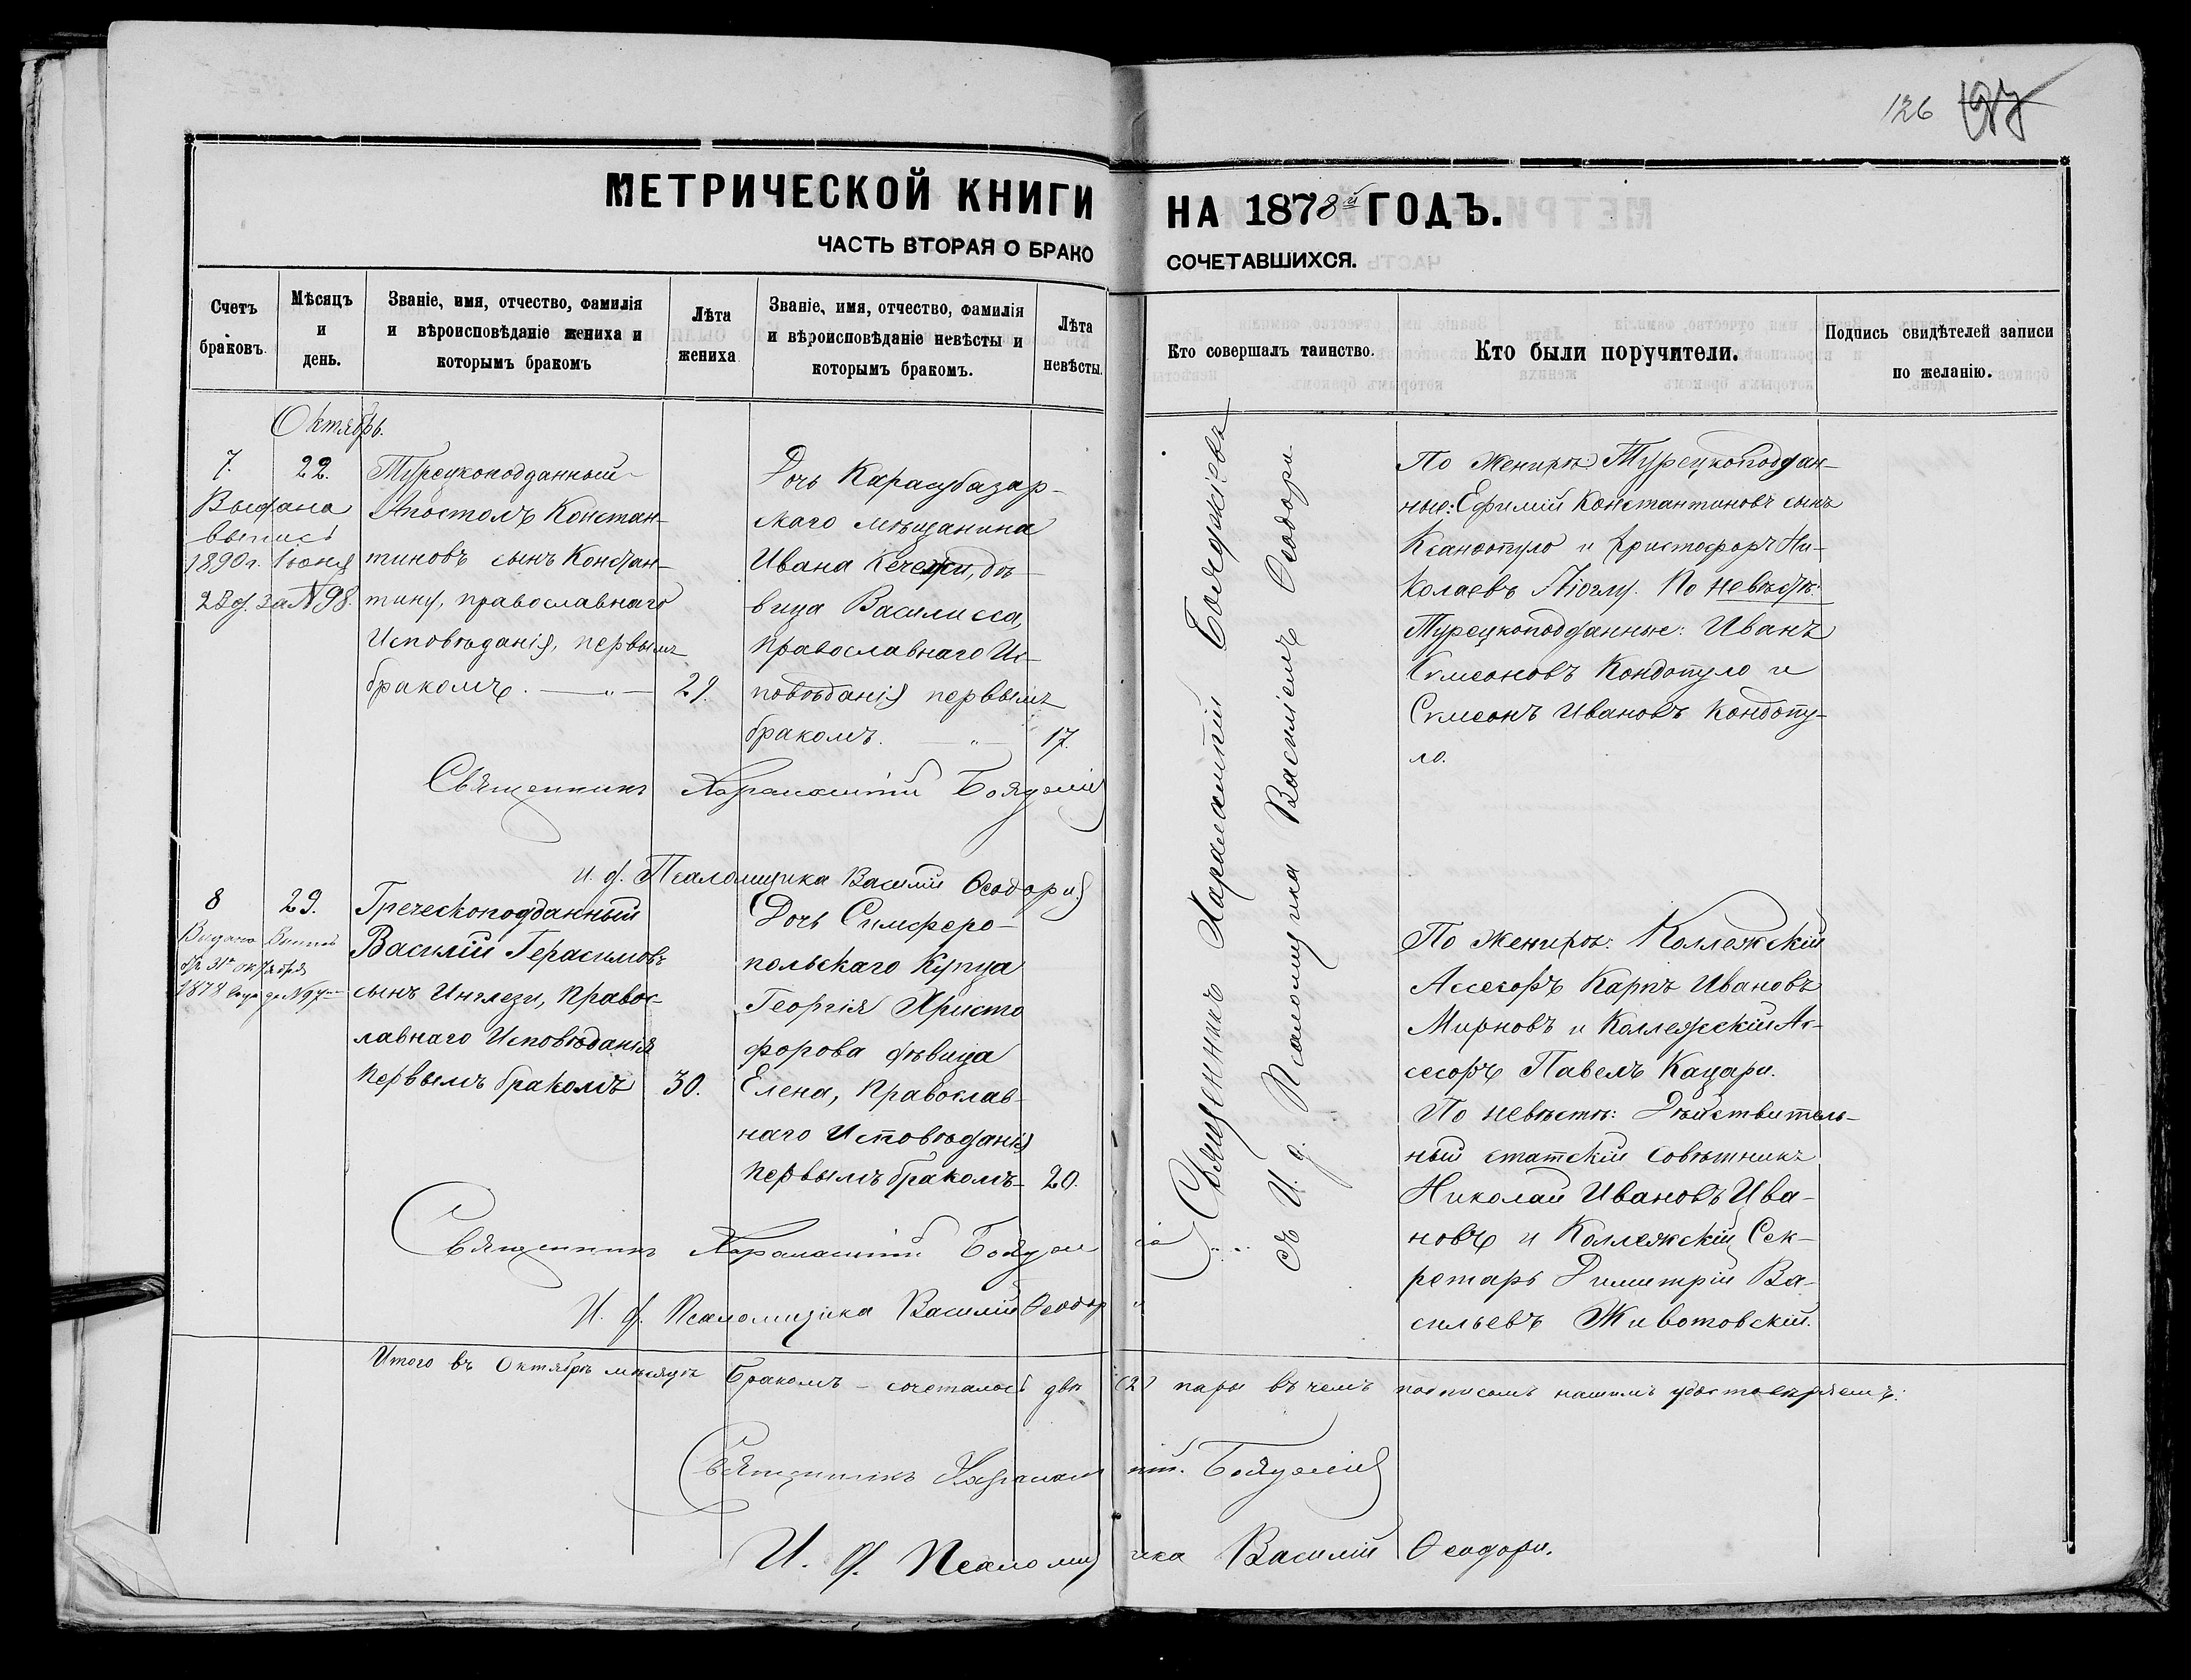 126
МЕТРИЧЕСКОЙ КНИГИ
НА 1878й ГОДЪ.
ЧАСТЬ ВТОРАЯ О БРАКО
СОЧЕТАВШИХСЯ.
Счетъ
браковъ.
Мѣсяцъ
и
день.
Званіе, имя, отчество, фамилія
и вѣроисповѣданіе жениха и
которымъ бракомъ
Лѣта
жениха
Званіе, имя, отчество, фамилія
и вѣроисповѣданіе невѣсты и
которымъ бракомъ.
Лѣта
невѣсты.
Кто совершалъ таинство.
Кто были поручители.
Подпись свидѣтелей записи
по желанію.
Октябрь.
7.
22.
Выдана
выпись
1890 г. Іюня
23 д. за N 98.
Турецкоподданный
Апостолъ Констан-
тиновъ сынъ Констан-
тину, православнаго
Исповѣданія, первымъ
бракомъ. — „ —
29.
Дочь Карасубазар-
скаго мѣщанина
Ивана дѣ-
вица Василисса,
Православнаго Ис-
повѣданія первымъ
бракомъ. — „ —
17.
Священникъ Харалампій
Священникъ Харалампій
съ И. д. Псаломщика Василіемъ Ѳеодори.
По женихѣ: Турецкоподдан-
ные: Ефимій Константиновъ сынъ
Ксанѳопуло и Христофоръ Ни-
колаевъ По невѣстѣ:
Турецкоподданные: Иванъ
Симеоновъ Кондопуло и
Симеонъ Ивановъ Кондопу-
ло.
И. д. Псаломщика Василій Ѳеодори
8
29.
Выдана Выпись
31го октября
1878 года за N 97
Греческоподданный
Василій Герасимовъ
сынъ Инглези, Правос-
лавнаго Исповѣданія
первымъ бракомъ
30.
Дочь Симферо-
польскаго Купца
Георгія Христо
форова дѣвица
Елена, Православ-
наго Исповѣданія
первымъ бракомъ
20.
По женихѣ: Коллежскій
Ассесоръ Карпъ Ивановъ
Мирновъ и Коллежскій Ас-
сесоръ Павелъ Кацари.
По невѣстѣ: Дѣйствитель-
ный статскій совѣтникъ
Николай Ивановъ Ива-
новъ и Коллежскій Сек-
ретарь Димитрій Ва-
сильевъ Животовскій.
Священникъ Харалампій
И. д. Псаломщика Василій Ѳеодори
Итого въ Октябрѣ мѣсяцѣ Бракомъ сочеталось двѣ (2) пары въ чемъ подписомъ нашимъ удостовѣряемъ:
Священникъ Харалампій
И. д. Псаломщика Василій Ѳеодори.